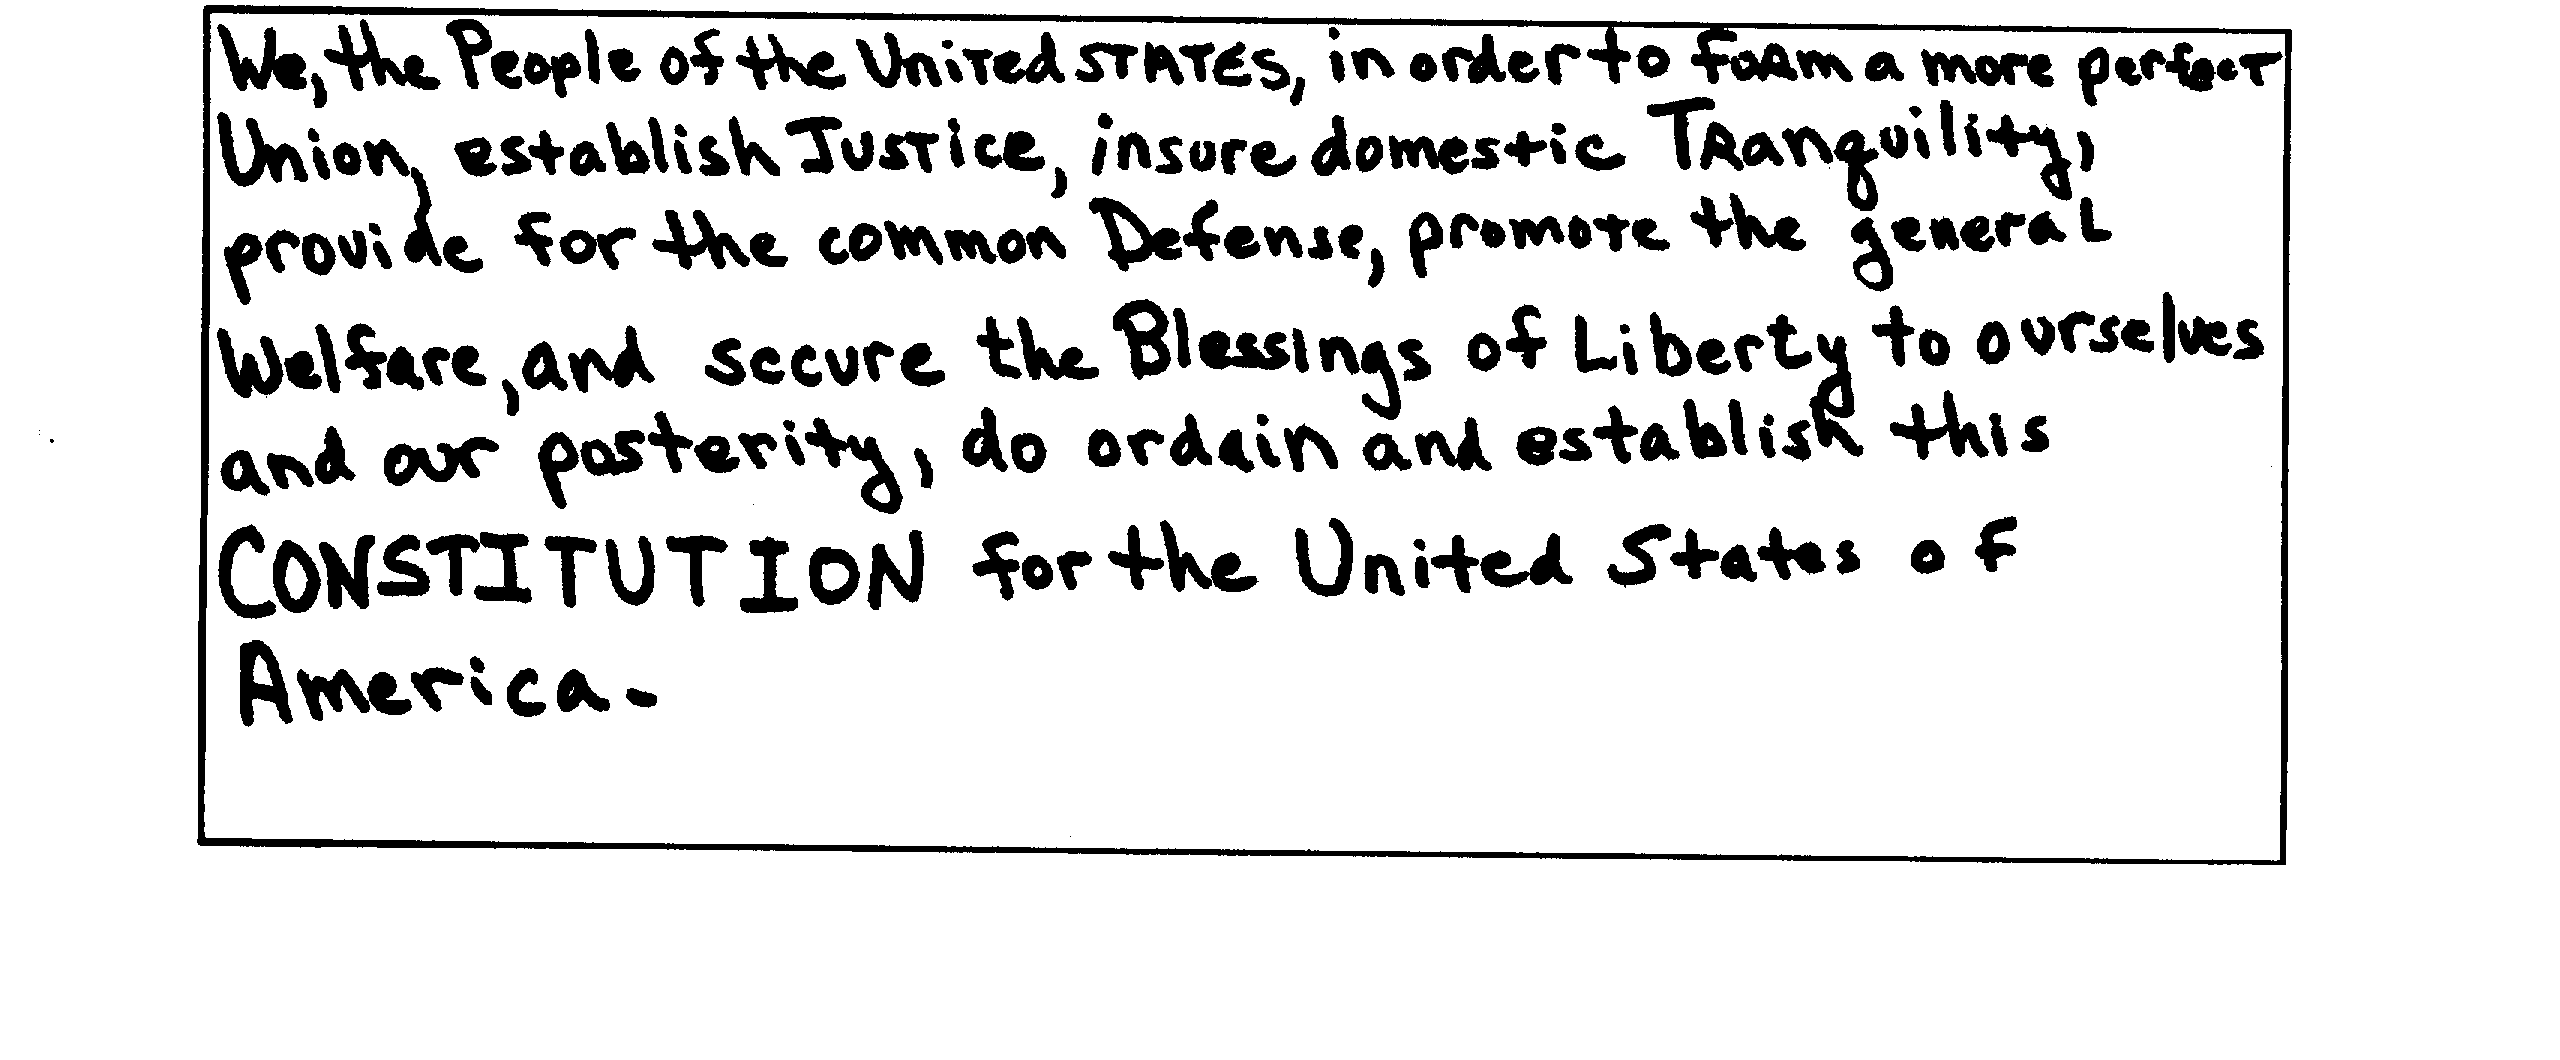 We, the People of the United STATES, in order to form a more perfect
Union, establish Justice, insure domestic Tranquility,
provide for the common Defense, promote the general
Welfare, and secure the Blessings of Liberty to ourselves
and our posterity, do ordain and establish this
CONSTITUTION for the United States of
America.